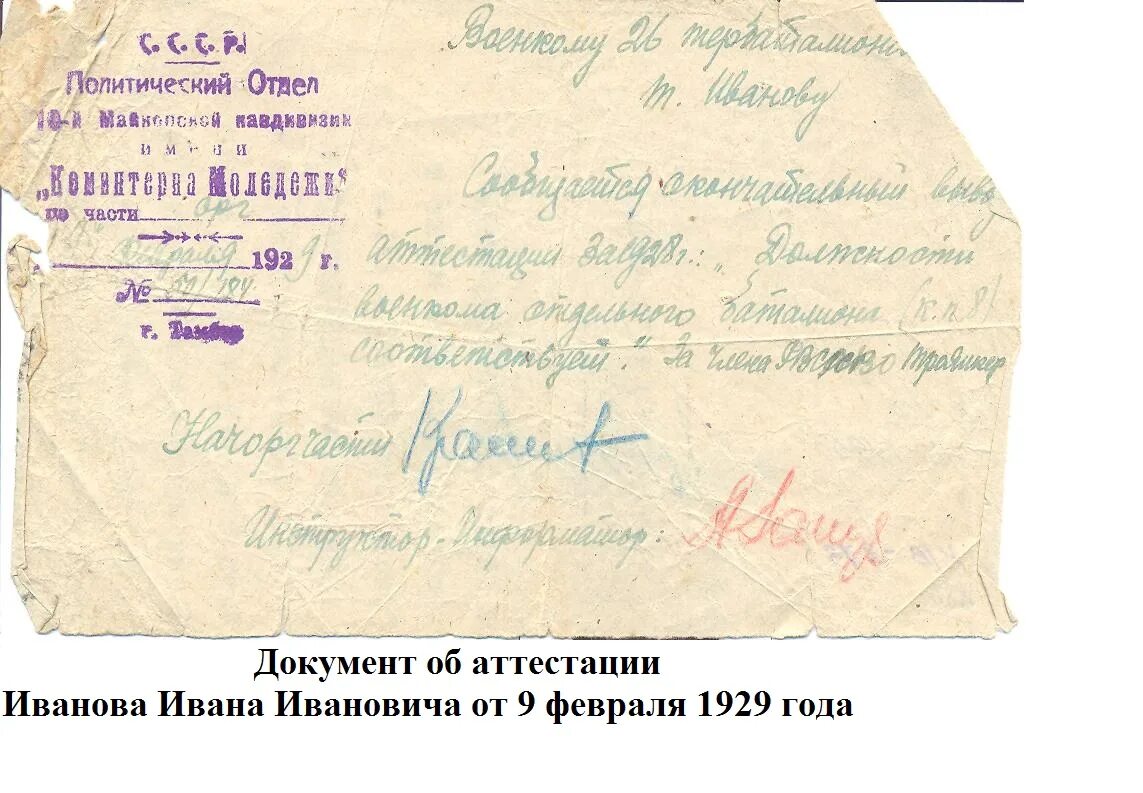 С.С.С.Р.
Политический Отдел
10-й Майкопской кавдивизии
имени
„Коминтерна Молодежи"
по части орг
февраля 1929 г.
№ 
г. Тамбов
Военкому 26 тербаталиона
т. Иванову
Сообщается окончательный выво
аттестации за 1928 г.: „Должности
военкома отдельного баталиона (к.п 8)
соответствует". За члена
Начоргчасти
Инструктор-Информатор:
Документ об аттестации
Иванова Ивана Ивановича от 9 февраля 1929 года